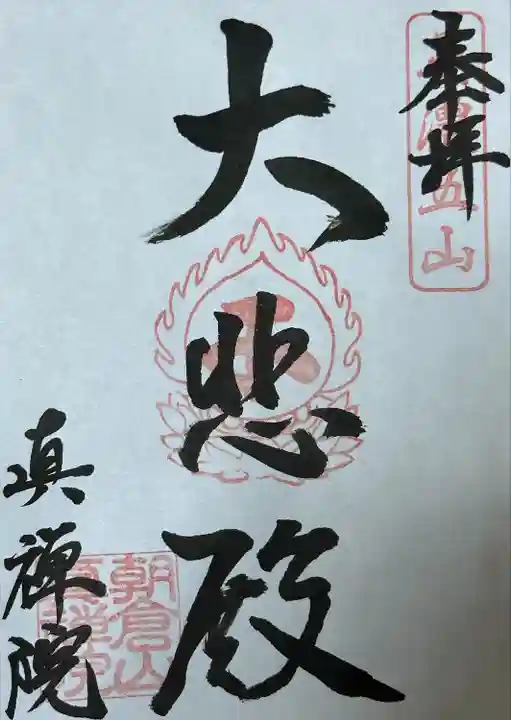 奉拝
五山
大悲殿
真禅院
朝倉山
真禅院